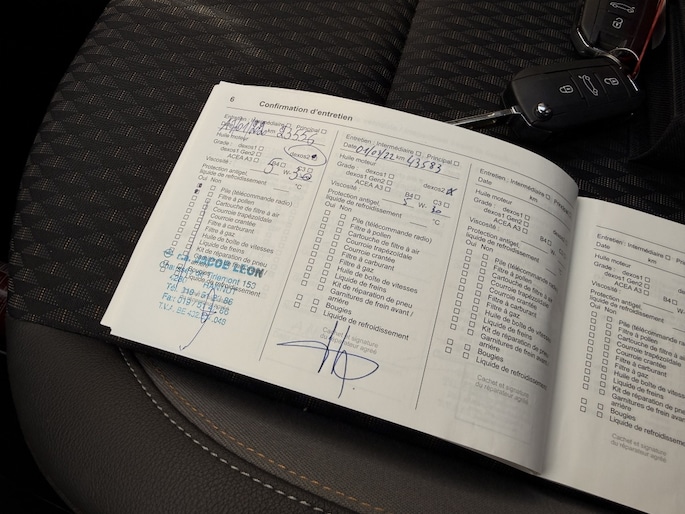 6
Confirmation d'entretien
Entretien : Intermédiaire Principal
km 23556
Huile moteur
Grade : dexos1 dexos2
dexos1 Gen2
ACEA A3 B4 C3
Viscosité : 5 W- 30
Protection antigel,
liquide de refroidissement °C
Oui Non
Pile (télécommande radio)
Filtre à pollen
Cartouche de filtre à air
Courroie trapézoïdale
Courroie crantée
Filtre à carburant
Filtre à gaz
Huile de boîte de vitesses
Liquide de freins
Kit de réparation de pneu
Bougies
JACOB LEON
Entretien : Intermédiaire Principal
Date 01/07/22 km 43583
Huile moteur
Grade : dexos1 dexos2
dexos1 Gen2
ACEA A3 B4 C3
Viscosité : 5 W- 30
Protection antigel,
liquide de refroidissement °C
Oui Non
Pile (télécommande radio)
Filtre à pollen
Cartouche de filtre à air
Courroie trapézoïdale
Courroie crantée
Filtre à carburant
Filtre à gaz
Huile de boîte de vitesses
Liquide de freins
Kit de réparation de pneu
Garnitures de frein avant /
arrière
Bougies
Liquide de refroidissement
Cachet et signature
du réparateur agréé
Entretien : Intermédiaire Principal
Date km
Huile moteur
Grade : dexos1 dexos2
dexos1 Gen2
ACEA A3 B4
Viscosité : W-
Protection antigel,
liquide de refroidissement
Oui Non
Pile (télécommande radio)
Filtre à pollen
Cartouche de filtre à air
Courroie trapézoïdale
Courroie crantée
Filtre à carburant
Filtre à gaz
Huile de boîte de vitesses
Liquide de freins
Kit de réparation de pneu
Garnitures de frein avant
arrière
Bougies
Liquide de refroidissement
Cachet et signature
du réparateur agréé
Entretien : Intermédiaire Principal
Date km
Huile moteur
Grade : dexos1
dexos1 Gen2
ACEA A3 B4
Viscosité : W-
Protection antigel,
liquide de refroidissement
Oui Non
Pile (télécommande radio)
Filtre à pollen
Cartouche de filtre à air
Courroie trapézoïdale
Courroie crantée
Filtre à carburant
Filtre à gaz
Huile de boîte de vitesses
Liquide de freins
Kit de réparation de pneu
Garnitures de frein avant
arrière
Bougies
Liquide de refroidissement
Cachet et signature
du réparateur agréé